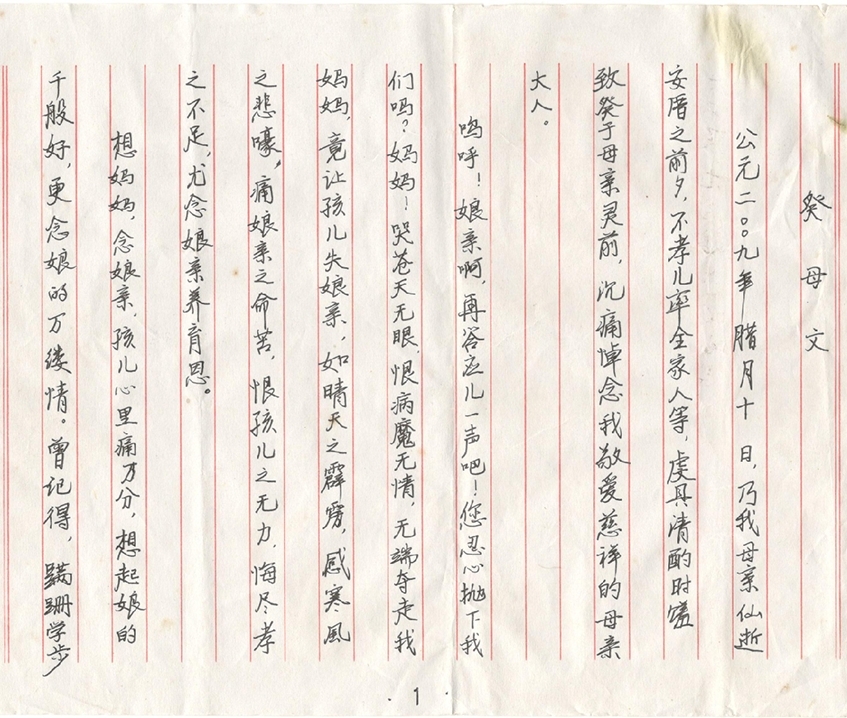 癸母文
公元二00九年腊月十日，乃我母亲仙逝
安厝之前夕，不孝儿率全家人等，虔具清酌时馐
致癸于母亲灵前，沉痛悼念我敬爱慈祥的母亲
大人。
呜呼！娘亲啊，再答应儿一声吧！您忍心抛下我
们吗？妈妈！哭苍天无眼，恨病魔无情，无端夺走我
妈妈，竟让孩儿失娘亲，如晴天之霹雳，感寒风
之悲嚎，痛娘亲之命苦，恨孩儿之无力，悔尽孝
之不足，尤念娘亲养育恩。
想妈妈，念娘亲，孩儿心里痛万分，想起娘的
千般好，更念娘的万缕情。曾记得，蹒跚学步
1